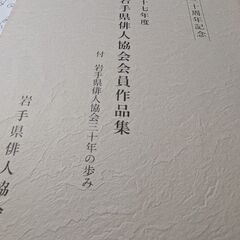 十周年記念
十七年度
岩手県俳人協会会員作品集
付 岩手県俳人協会三十年の歩み
岩手県俳人協会